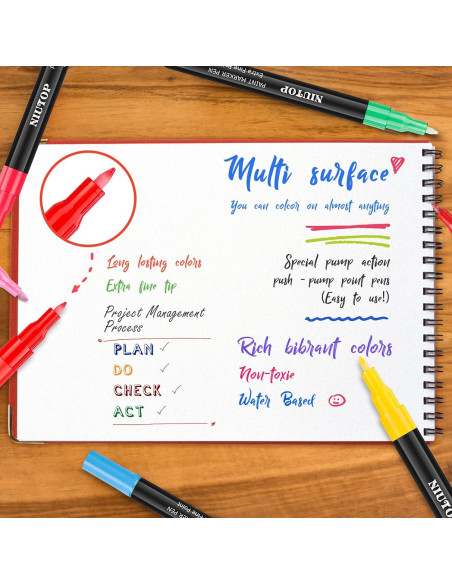 PAINT MARKER PEN
Extra Fine Point
NIUTOP
NIUTOP
Multi surface
You can colcor on almost anyting
Long losting colors
Extra fine tip
Special pump action
push - pump point pens
(Easy to use!)
Project Management
Process
PLAN ✓
DO ✓
CHECK ✓
ACT ✓
Rich bibrant colors
Non-toxie
Water Based
NIUTOP
Fine Point
ER PEN